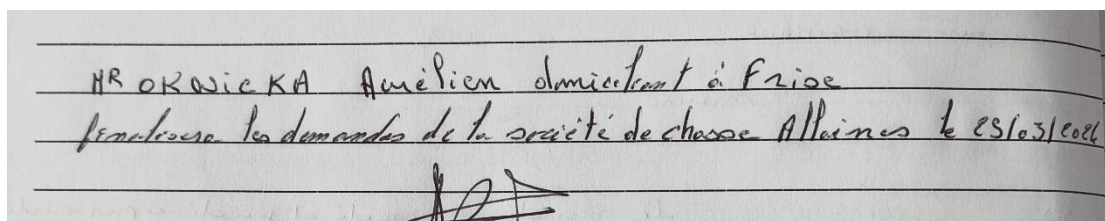 MR OKWICKA Aurélien domicilient à Frise
finalisera les demandes de la société de chasse Allaines le 25/03/2024